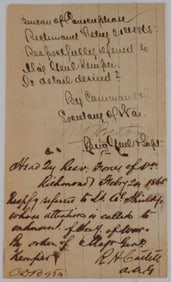 Bureau of Conscription
Richmond Feby 21 1865
Respectfully referred to
Maj Genl Kemper
Is detail desired?
By Command
Secretary of War
Head Qrs Reser. Forces of Va.
Richmond Feby 24 1865
Respy referred to Lt. Col Shields
whose attention is called to
endmt of Secy of War.
By order of Maj Genl
Kemper
R H Catlett
A.A.G